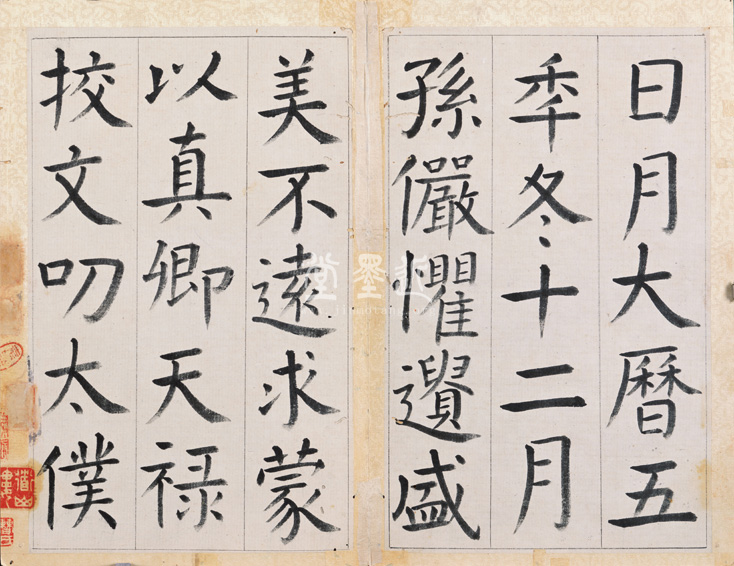 日月大曆五
秊冬十二月
孫儼懼遺盛
美不遠求蒙
以真卿天禄
挍文叨太僕